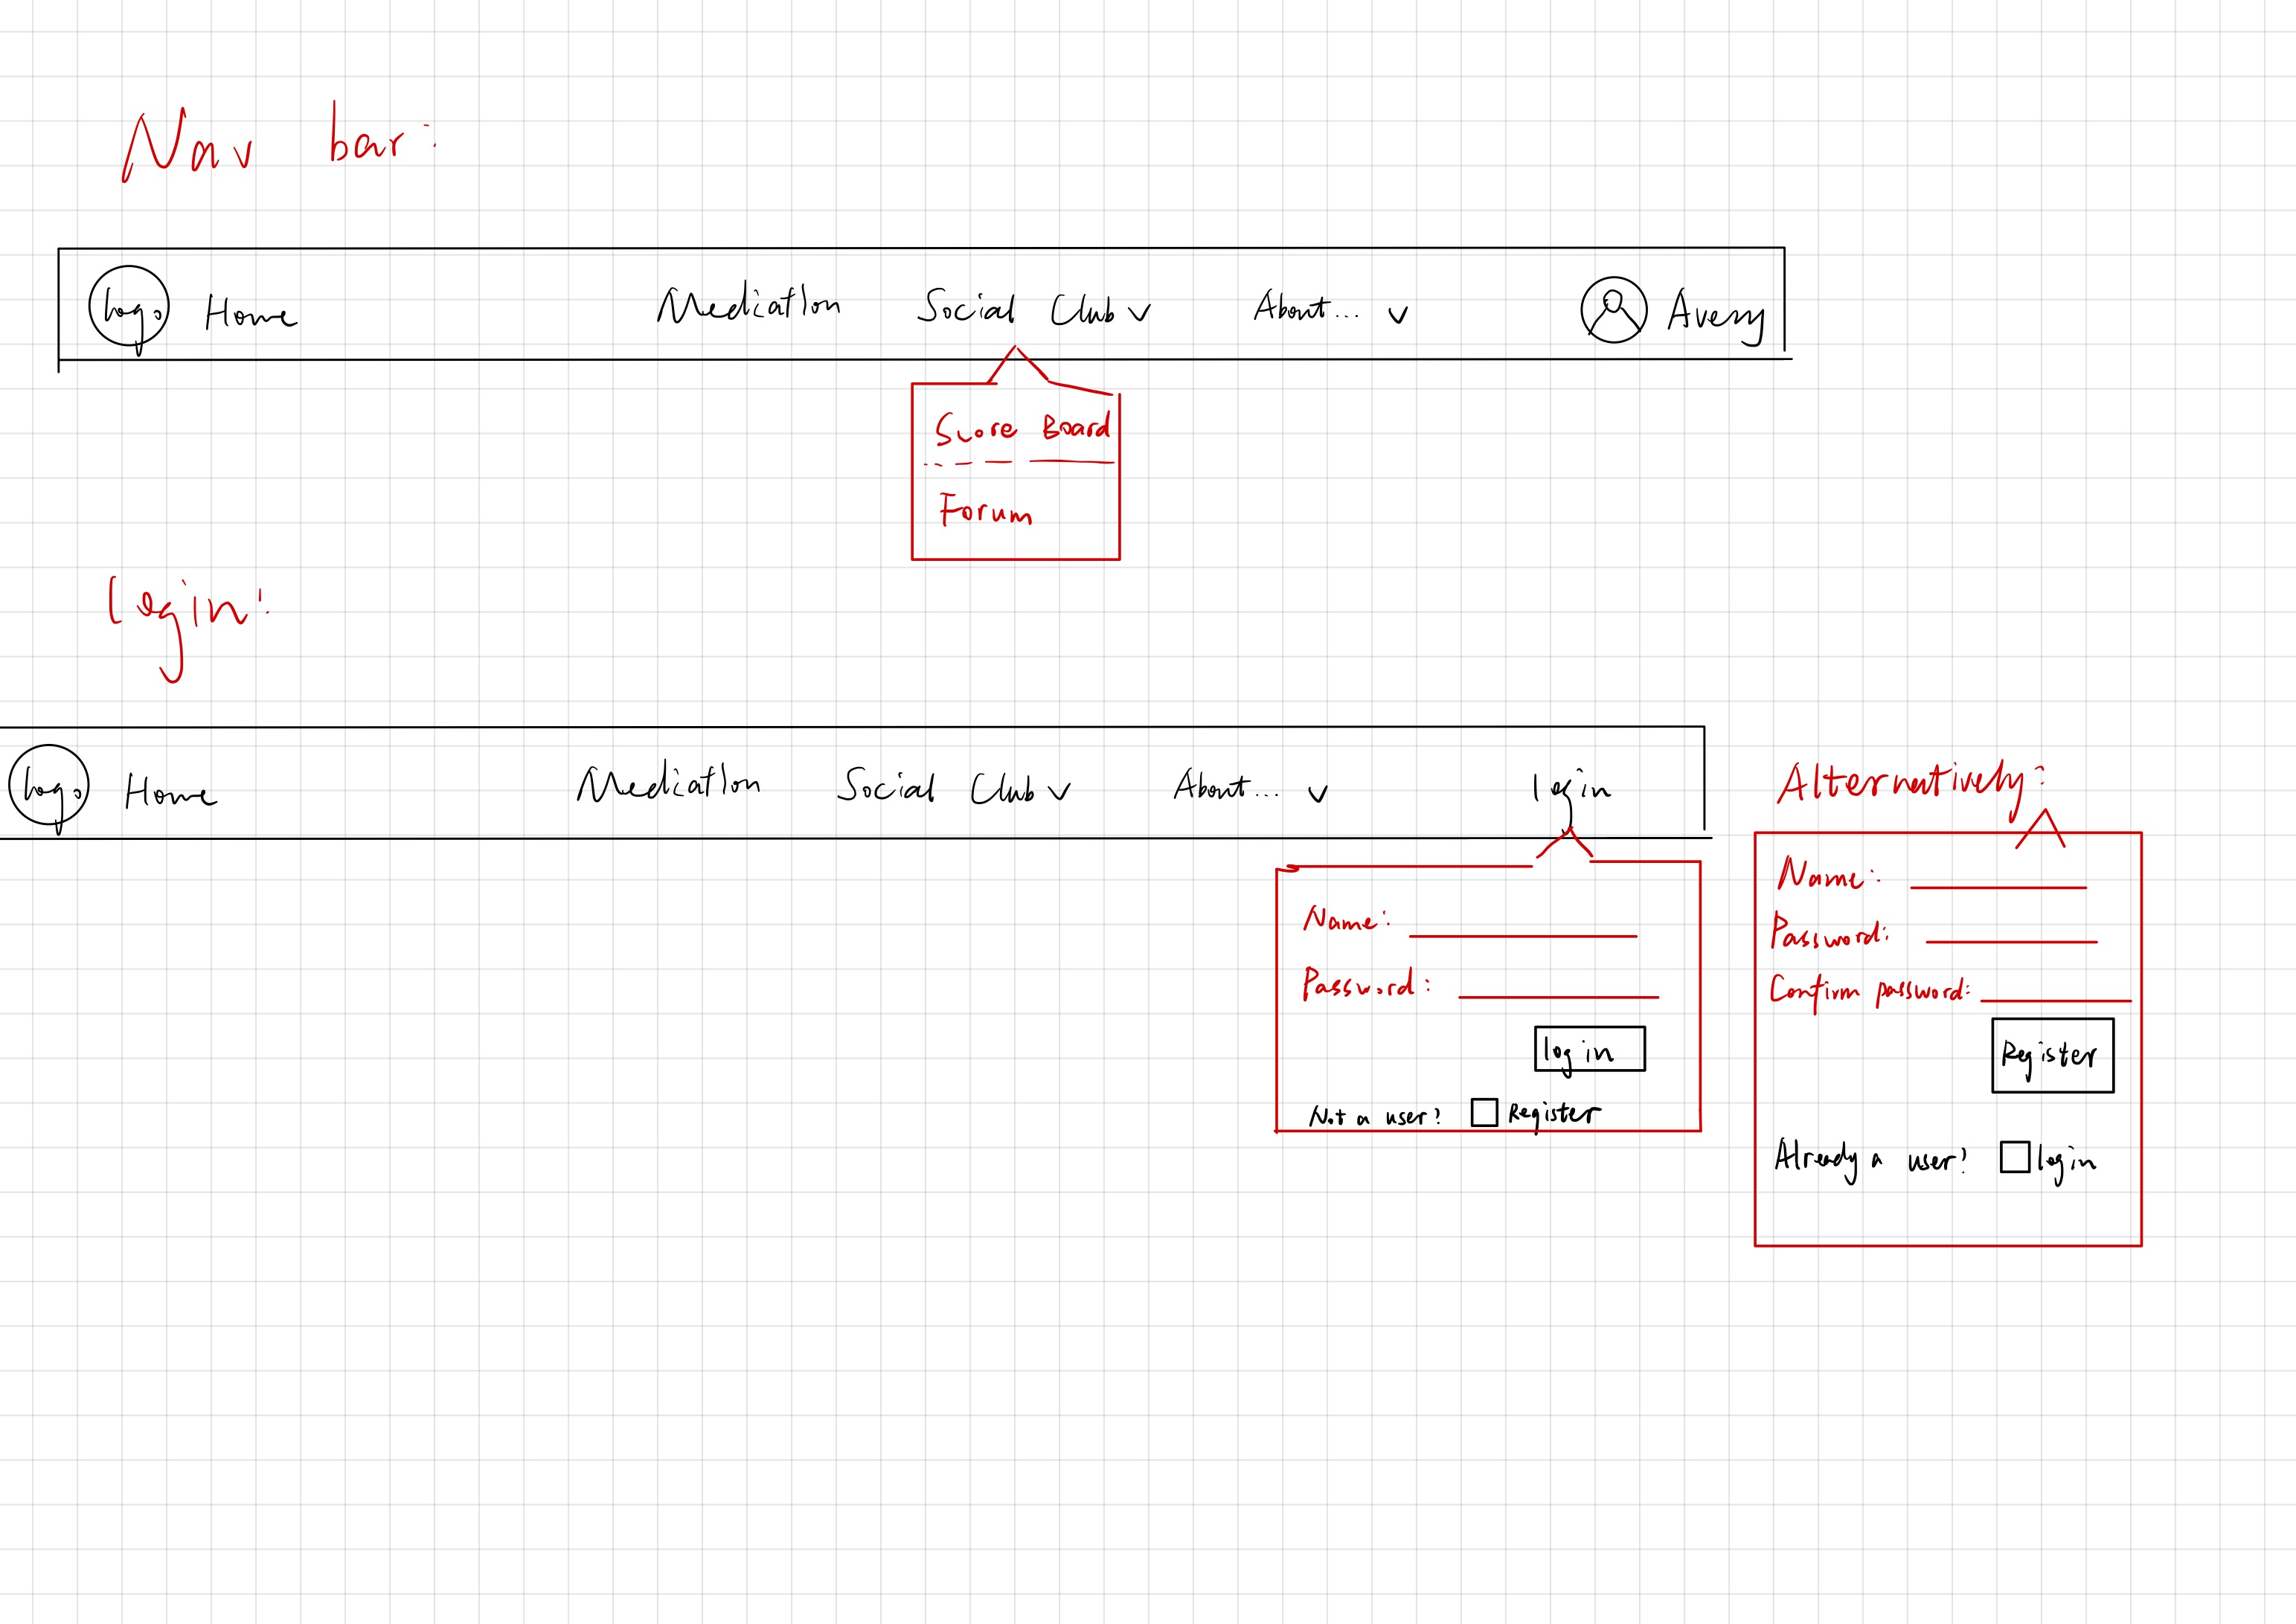 Nav bar:
Logo Home Mediation Social Club ∨ About... ∨ Avery
Score Board
Forum
login:
Logo Home Mediation Social Club ∨ About... ∨ login
Name:
Password:
login
Not a user? Register
Alternatively:
Name:
Password:
Confirm password:
Register
Already a user? login